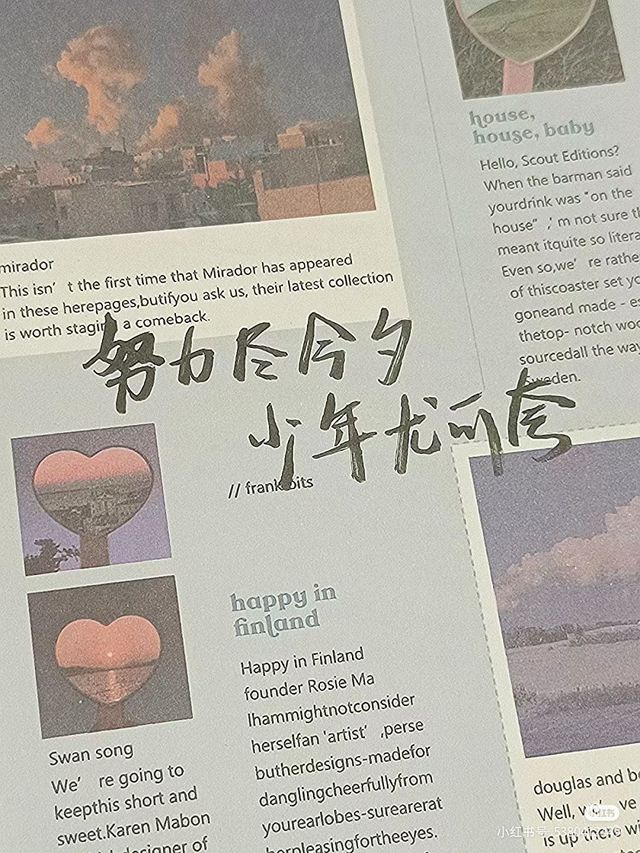 house,
house, baby
Hello, Scout Editions?
When the barman said
yourdrink was "on the
house" ,' m not sure
meant itquite so
Even so,we' re rathe
of thiscoaster set
goneand made -
thetop- notch
sourcedall the way
Sweden.
mirador
This isn' t the first time that Mirador has appeared
in these herepages,butifyou ask us, their latest collection
is worth staging a comeback.
努力尽今夕
少年尤可夸
// frank bits
happy in
finland
Happy in Finland
founder Rosie Ma
lhammightnotconsider
herselfan 'artist' ,perse
butherdesigns-madefor
danglingcheerfullyfrom
yourearlobes-surearerat
herpleasingfortheeyes.
Swan song
We' re going to
keepthis short and
sweet.Karen Mabon
designer of
douglas and
Well, ve
is up there
小红书
小红书号